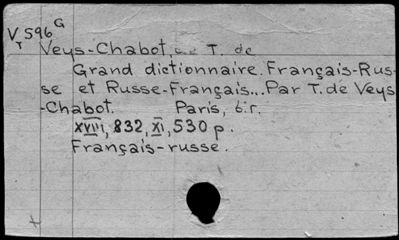 V 596 G
T
Veys-Chabot, T. de
Grand dictionnaire. Français-Rus-
se et Russe-Français... Par T. de Veys
-Chabot. Paris, б.г.
XVIII, 832, XI, 530 p.
Français-russe.